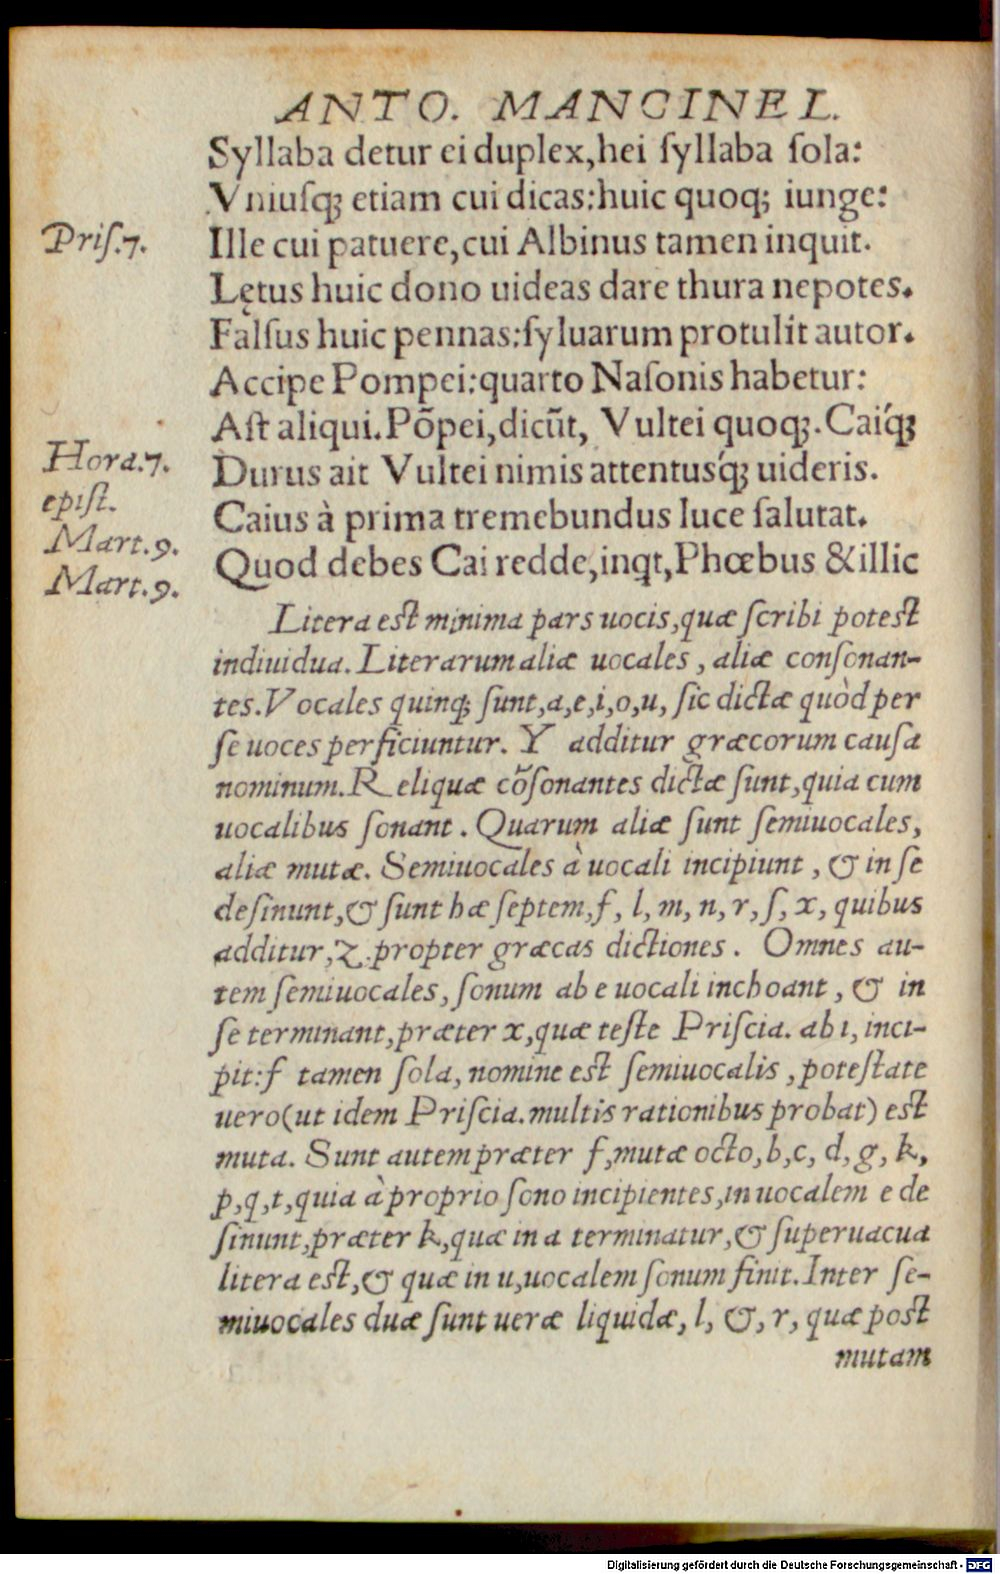 ANTO. MANCINEL.
Syllaba detur ei duplex, hei ſyllaba ſola:
Vniuſq; etiam cui dicas: huic quoq; iunge:
Priſ.7.
Ille cui patuere, cui Albinus tamen inquit.
Lętus huic dono uideas dare thura nepotes.
Falſus huic pennas: ſyluarum protulit autor.
Accipe Pompei: quarto Naſonis habetur:
Aſt aliqui. Põpei, dicũt, Vultei quoq;. Caíq;
Hora.7.
epiſt.
Durus ait Vultei nimis attentuśq; uideris.
Mart.9.
Caius à prima tremebundus luce ſalutat.
Mart.9.
Quod debes Cai redde, inqt, Phœbus & illic
Litera eſt minima pars uocis, quæ ſcribi poteſt
indiuidua. Literarum aliæ uocales, aliæ conſonan-
tes. Vocales quinq; ſunt, a, e, i, o, u, ſic dictæ quòd per
ſe uoces perficiuntur. Y additur græcorum cauſa
nominum. Reliquæ cõſonantes dictæ ſunt, quia cum
uocalibus ſonant. Quarum aliæ ſunt ſemiuocales,
aliæ mutæ. Semiuocales à uocali incipiunt, & in ſe
deſinunt, & ſunt hæ ſeptem, f, l, m, n, r, ſ, x, quibus
additur, z. propter græcas dictiones. Omnes au-
tem ſemiuocales, ſonum ab e uocali inchoant, & in
ſe terminant, præter x, quæ teſte Priſcia. ab i, inci-
pit: f tamen ſola, nomine eſt ſemiuocalis, poteſtate
uero (ut idem Priſcia. multis rationibus probat) eſt
muta. Sunt autem præter f, mutæ octo, b, c, d, g, k,
p, q, t, quia à proprio ſono incipientes, in uocalem e de
ſinunt, præter k, quæ in a terminatur, & ſuperuacua
litera eſt, & quæ in u, uocalem ſonum finit. Inter ſe-
miuocales duæ ſunt ueræ liquidæ, l, &, r, quæ poſt
mutam
Digitalisierung gefördert durch die Deutsche Forschungsgemeinschaft - DFG